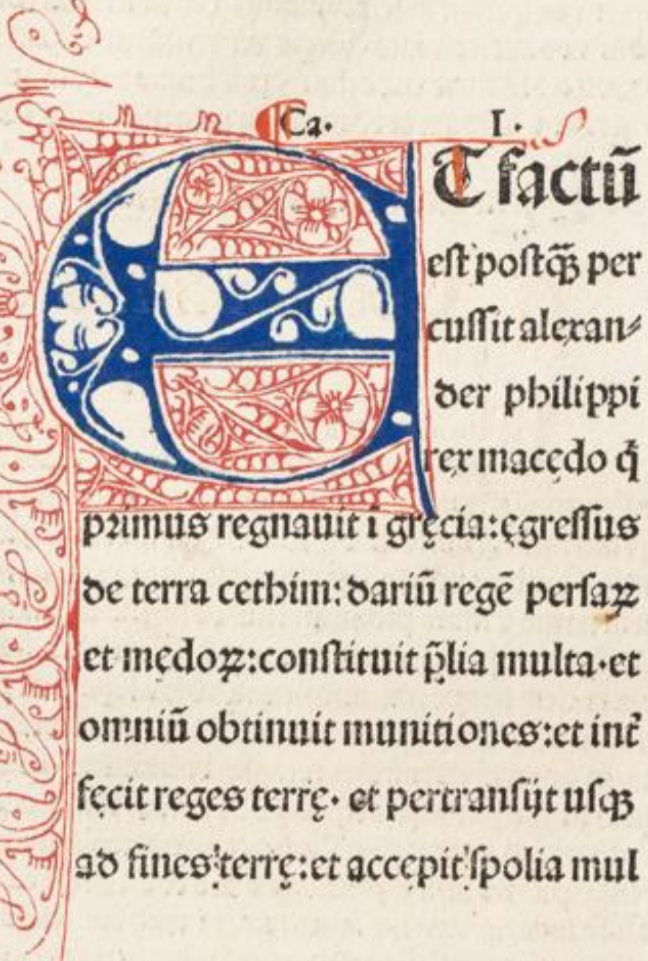 Ca. I.
ET factū
est postqꝫ per
cussit alexan⸗
der philippi
rex macędo q̄
primus regnauit ī gręcia: ęgressus
de terra cethim: dariū regē persaꝝ
et mędoꝝ: constituit p̄lia multa· et
omniū obtinuit munitiones: et int̄
fęcit reges terrę· et pertransijt usqꝫ
ad fines terrę: et accępit spolia mul